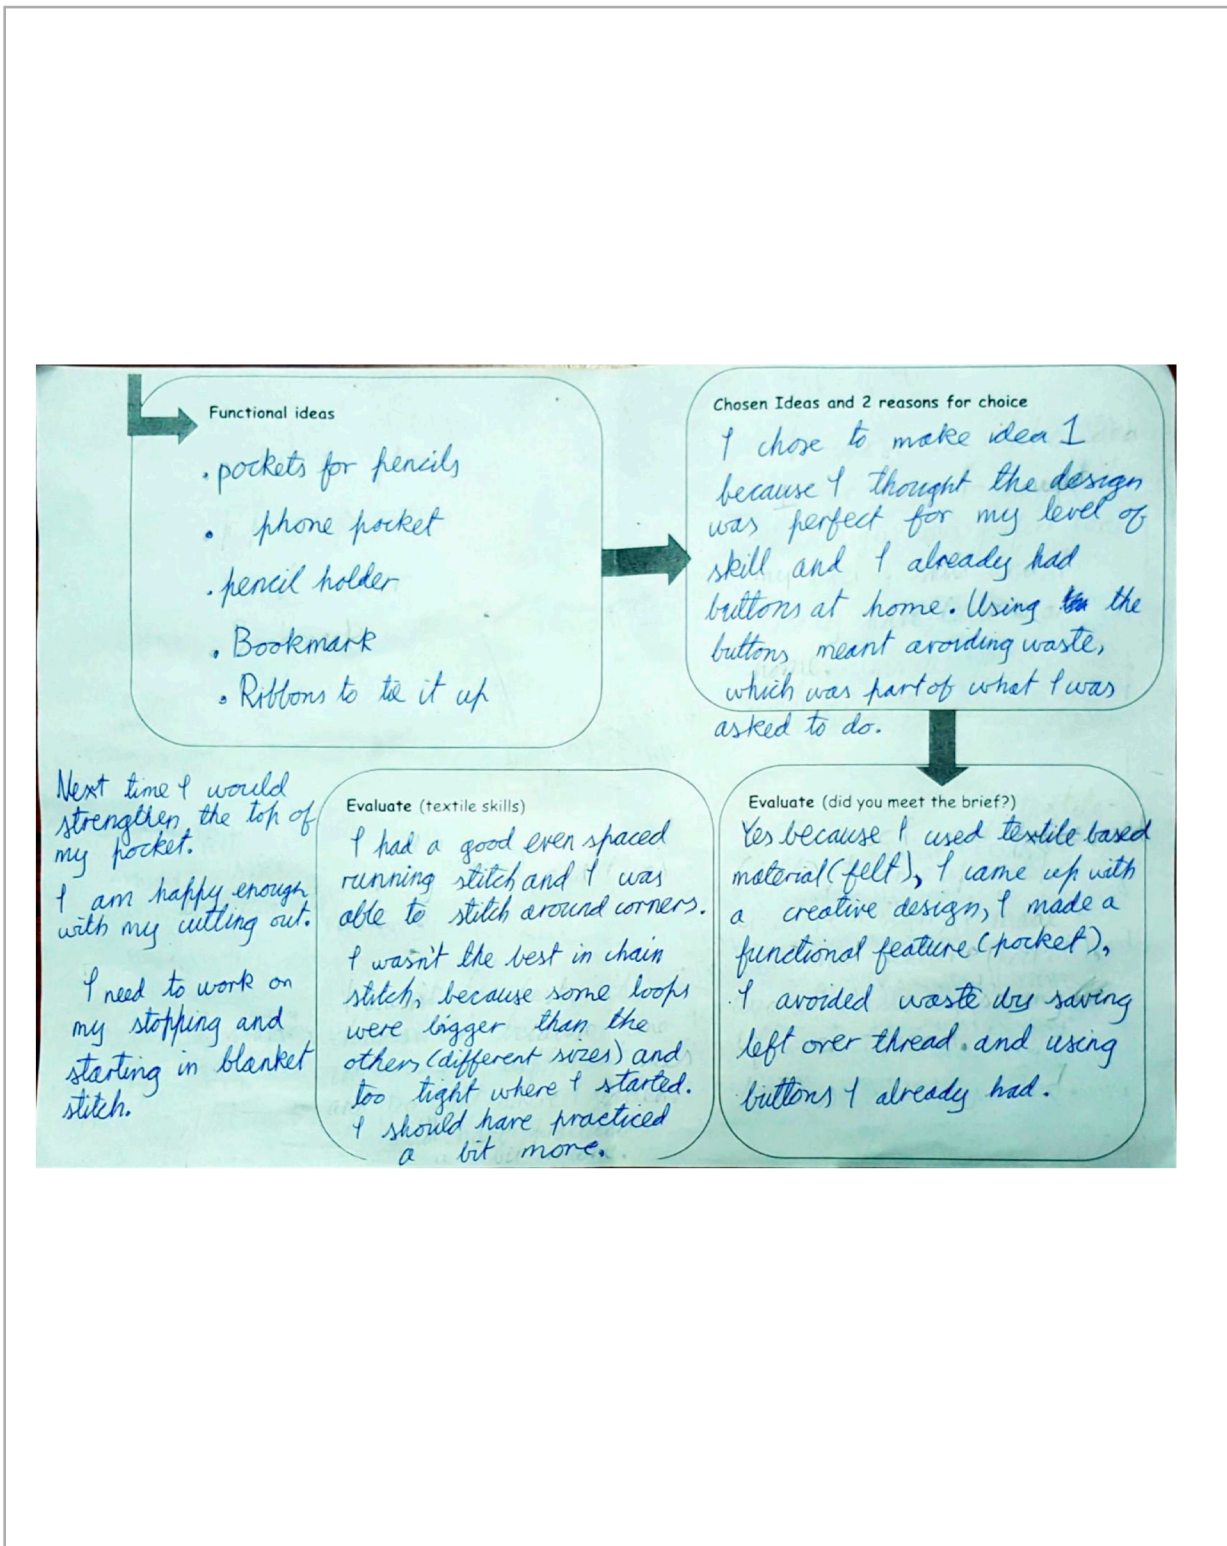 Functional ideas
. pockets for pencils
. phone pocket
. pencil holder
. Bookmark
. Ribbons to tie it up
Chosen Ideas and 2 reasons for choice
I chose to make idea 1
because I thought the design
was perfect for my level of
skill and I already had
buttons at home. Using the
buttons meant avoiding waste,
which was part of what I was
asked to do.
Evaluate (did you meet the brief?)
Yes because I used textile based
material (felt), I came up with
a creative design, I made a
functional feature (pocket),
I avoided waste by saving
left over thread and using
buttons I already had.
Evaluate (textile skills)
I had a good even spaced
running stitch and I was
able to stitch around corners.
I wasn't the best in chain
stitch, because some loops
were bigger than the
others (different sizes) and
too tight where I started.
I should have practiced
a bit more.
Next time I would
strengthen the top of
my pocket.
I am happy enough
with my cutting out.
I need to work on
my stopping and
starting in blanket
stitch.